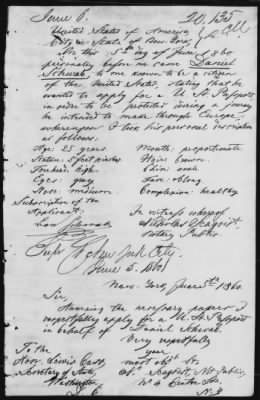 June 6. 20.135
United States of America
City & State of New York
On this 5th day of June 1860
personally before me came Daniel
Schwab, to me known to be a citizen
of the United States, stating that he
wanted to apply for a U. St. Passport
in order to be protected during a journey
he intended to make through Europe
whereupon I took his personal description
as follows:
Age: 25 years Mouth: proportionate
Stature: 5 feet Hair: brown.
Forehead: high. Chin:
Eyes: gray Face: oblong
Nose: medium Complexion: healthy
Subscription of the
Applicant: In witness whereof
Schwab Seagrist,
Notary Public
New York City
June 5. 1860
New-York, June 5th 1860.
Sir,
Annexing the necessary papers I
respectfully apply for a U. St. Passport
in behalf of Daniel Schwab.
Very respectfully
To the your
Hon. Lewis Cass, most obt. St.
Secretary of State, Seagrist, Not. Public,
Washington No 4 Centre Str.
D. C. N.Y.